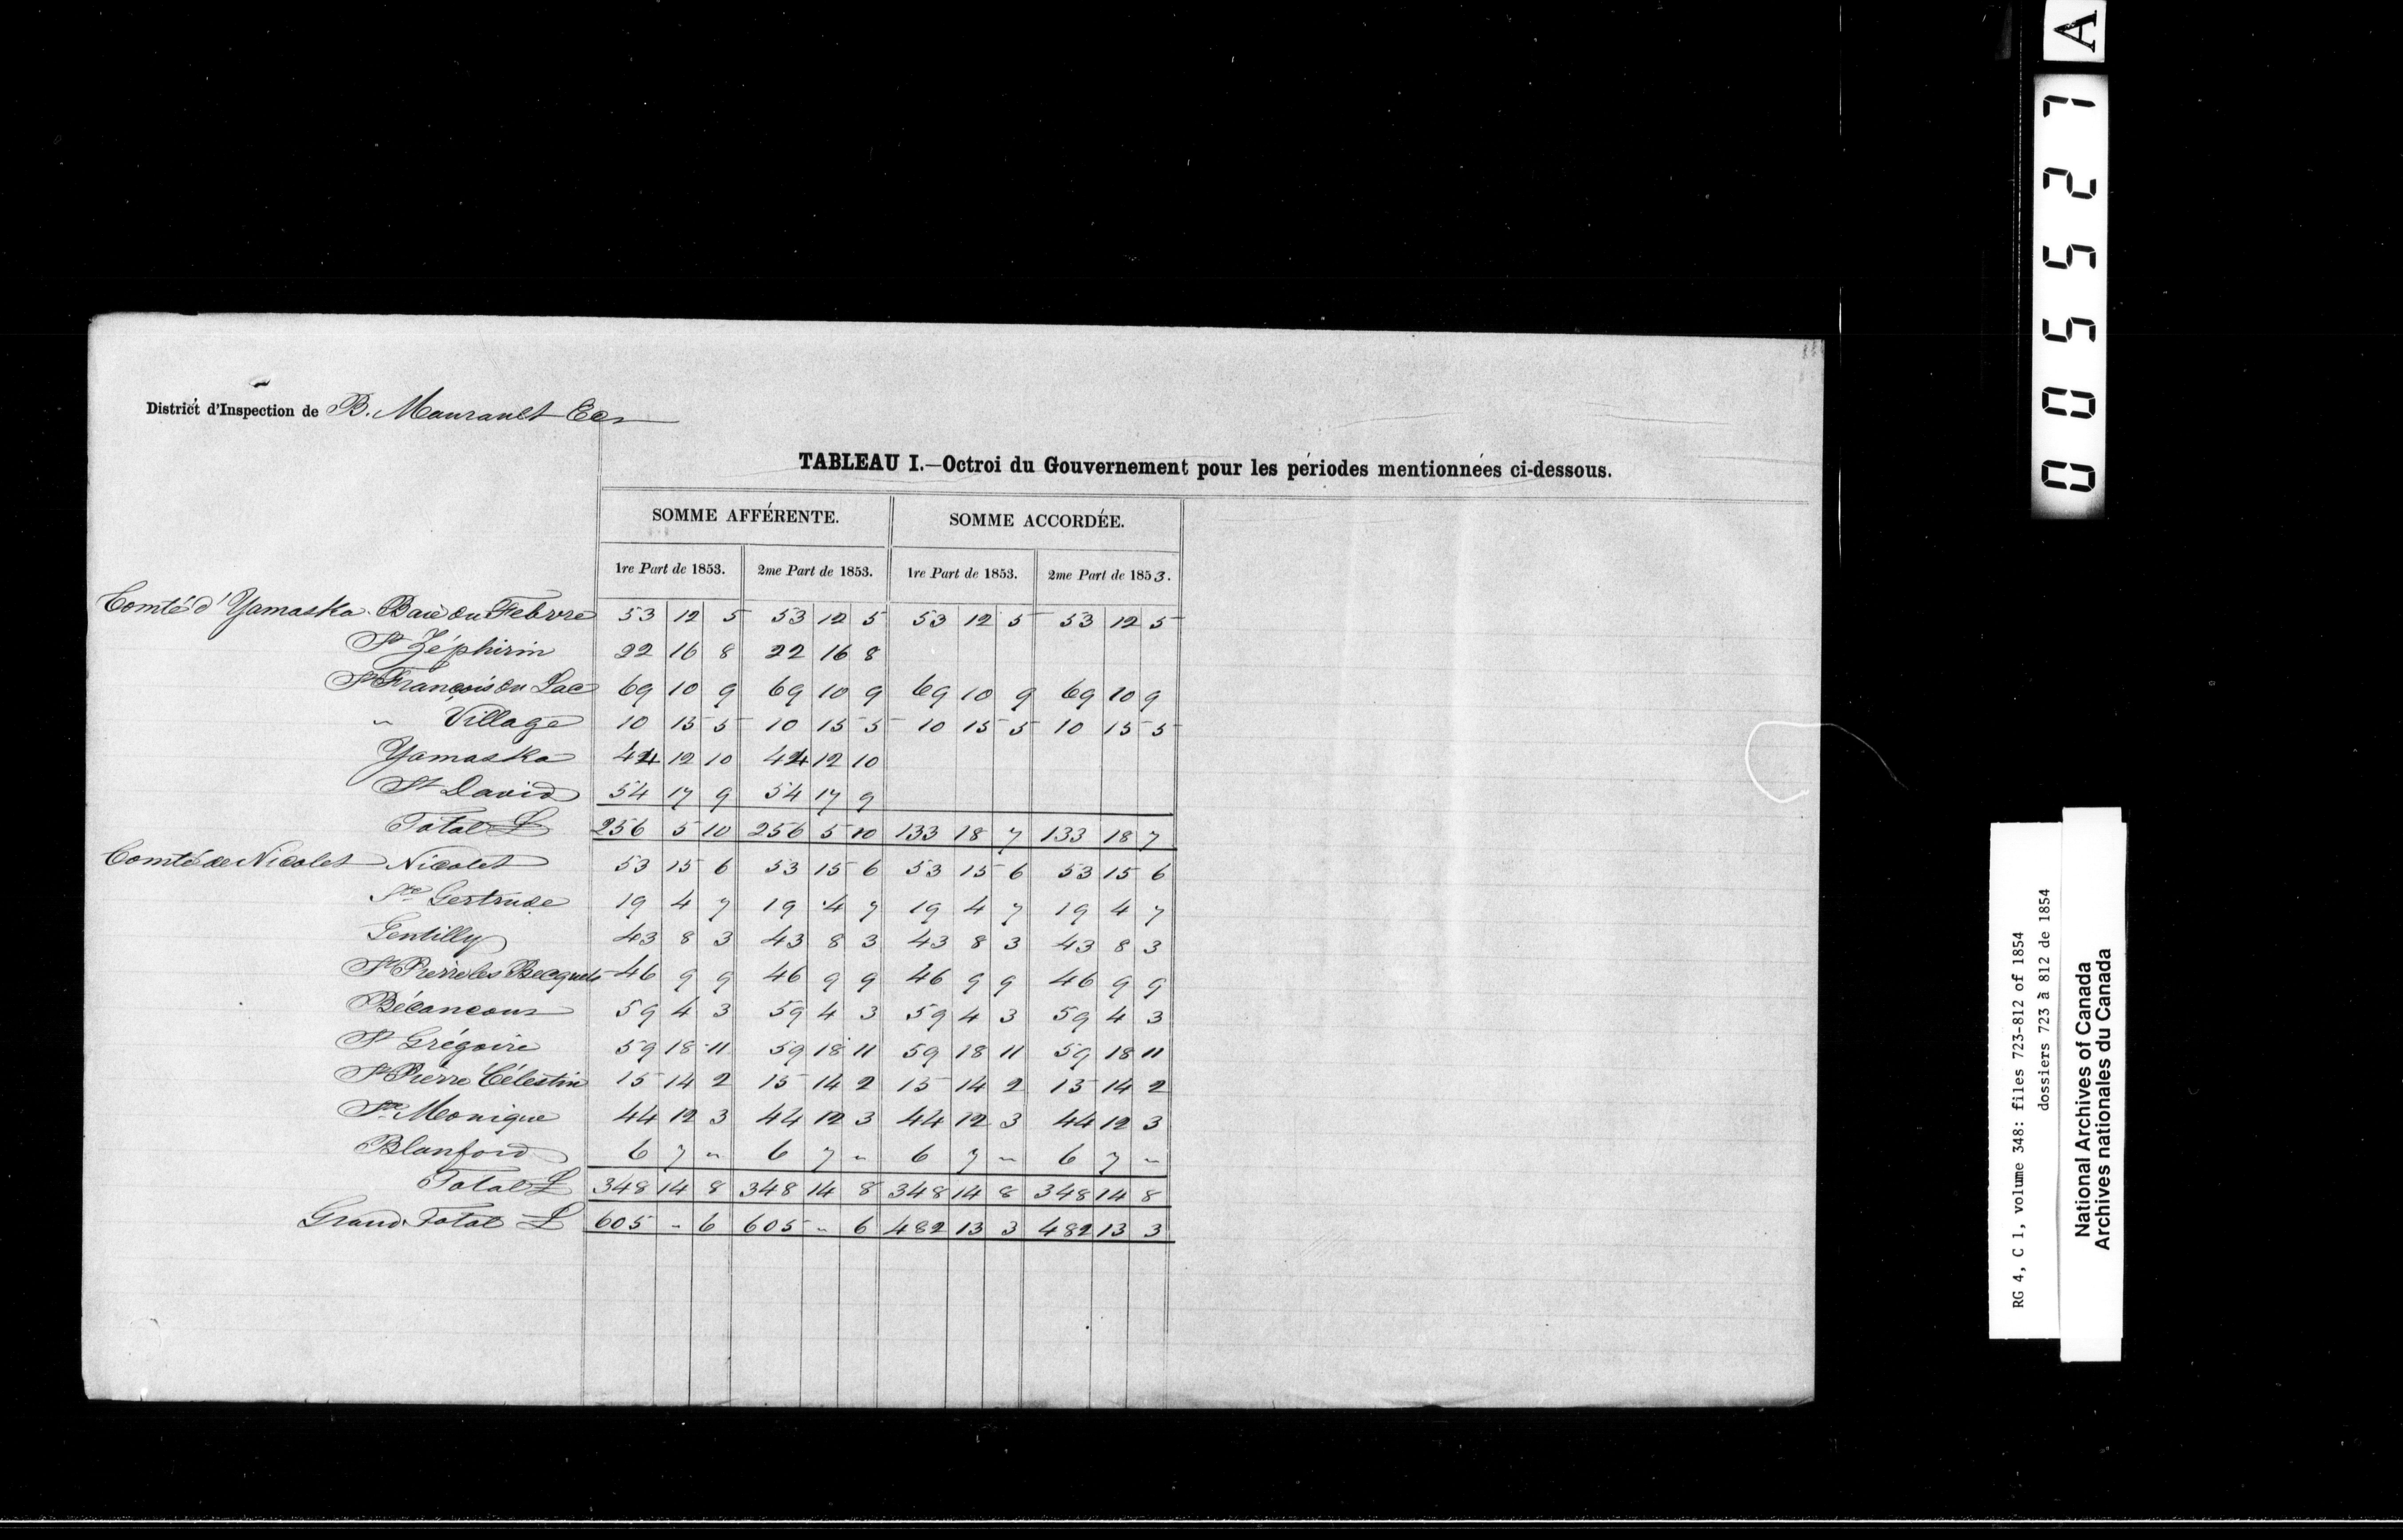 District d'Inspection de B. Maurault Ecr
TABLEAU I.—Octroi du Gouvernement pour les périodes mentionnées ci-dessous.
SOMME AFFÉRENTE. SOMME ACCORDÉE.
1re Part de 1853. 2me Part de 1853. 1re Part de 1853. 2me Part de 1853.
Comté d'Yamaska Baie du Febvre 53 12 5 53 12 5 53 12 5 53 12 5
St Zéphirin 22 16 8 22 16 8
St François du Lac 69 10 9 69 10 9 69 10 9 69 10 9
" Village 10 15 5 10 15 5 10 15 5 10 15 5
Yamaska 44 12 10 44 12 10
St David 54 17 9 54 17 9
Total £ 256 5 10 256 5 10 133 18 7 133 18 7
Comté de Nicolet Nicolet 53 15 6 53 15 6 53 15 6 53 15 6
Ste Gertrude 19 4 7 19 4 7 19 4 7 19 4 7
Gentilly 43 8 3 43 8 3 43 8 3 43 8 3
St Pierre les Becquets 46 9 9 46 9 9 46 9 9 46 9 9
Bécancour 59 4 3 59 4 3 59 4 3 59 4 3
St Grégoire 59 18 11 59 18 11 59 18 11 59 18 11
St Pierre Célestin 15 14 2 15 14 2 15 14 2 15 14 2
Ste Monique 44 12 3 44 12 3 44 12 3 44 12 3
Blanford 6 7 " 6 7 " 6 7 " 6 7 "
Total £ 348 14 8 348 14 8 348 14 8 348 14 8
Grand Total £ 605 " 6 605 " 6 482 13 3 482 13 3
005527 A
RG 4, C 1, volume 348: files 723-812 of 1854
dossiers 723 à 812 de 1854
National Archives of Canada
Archives nationales du Canada